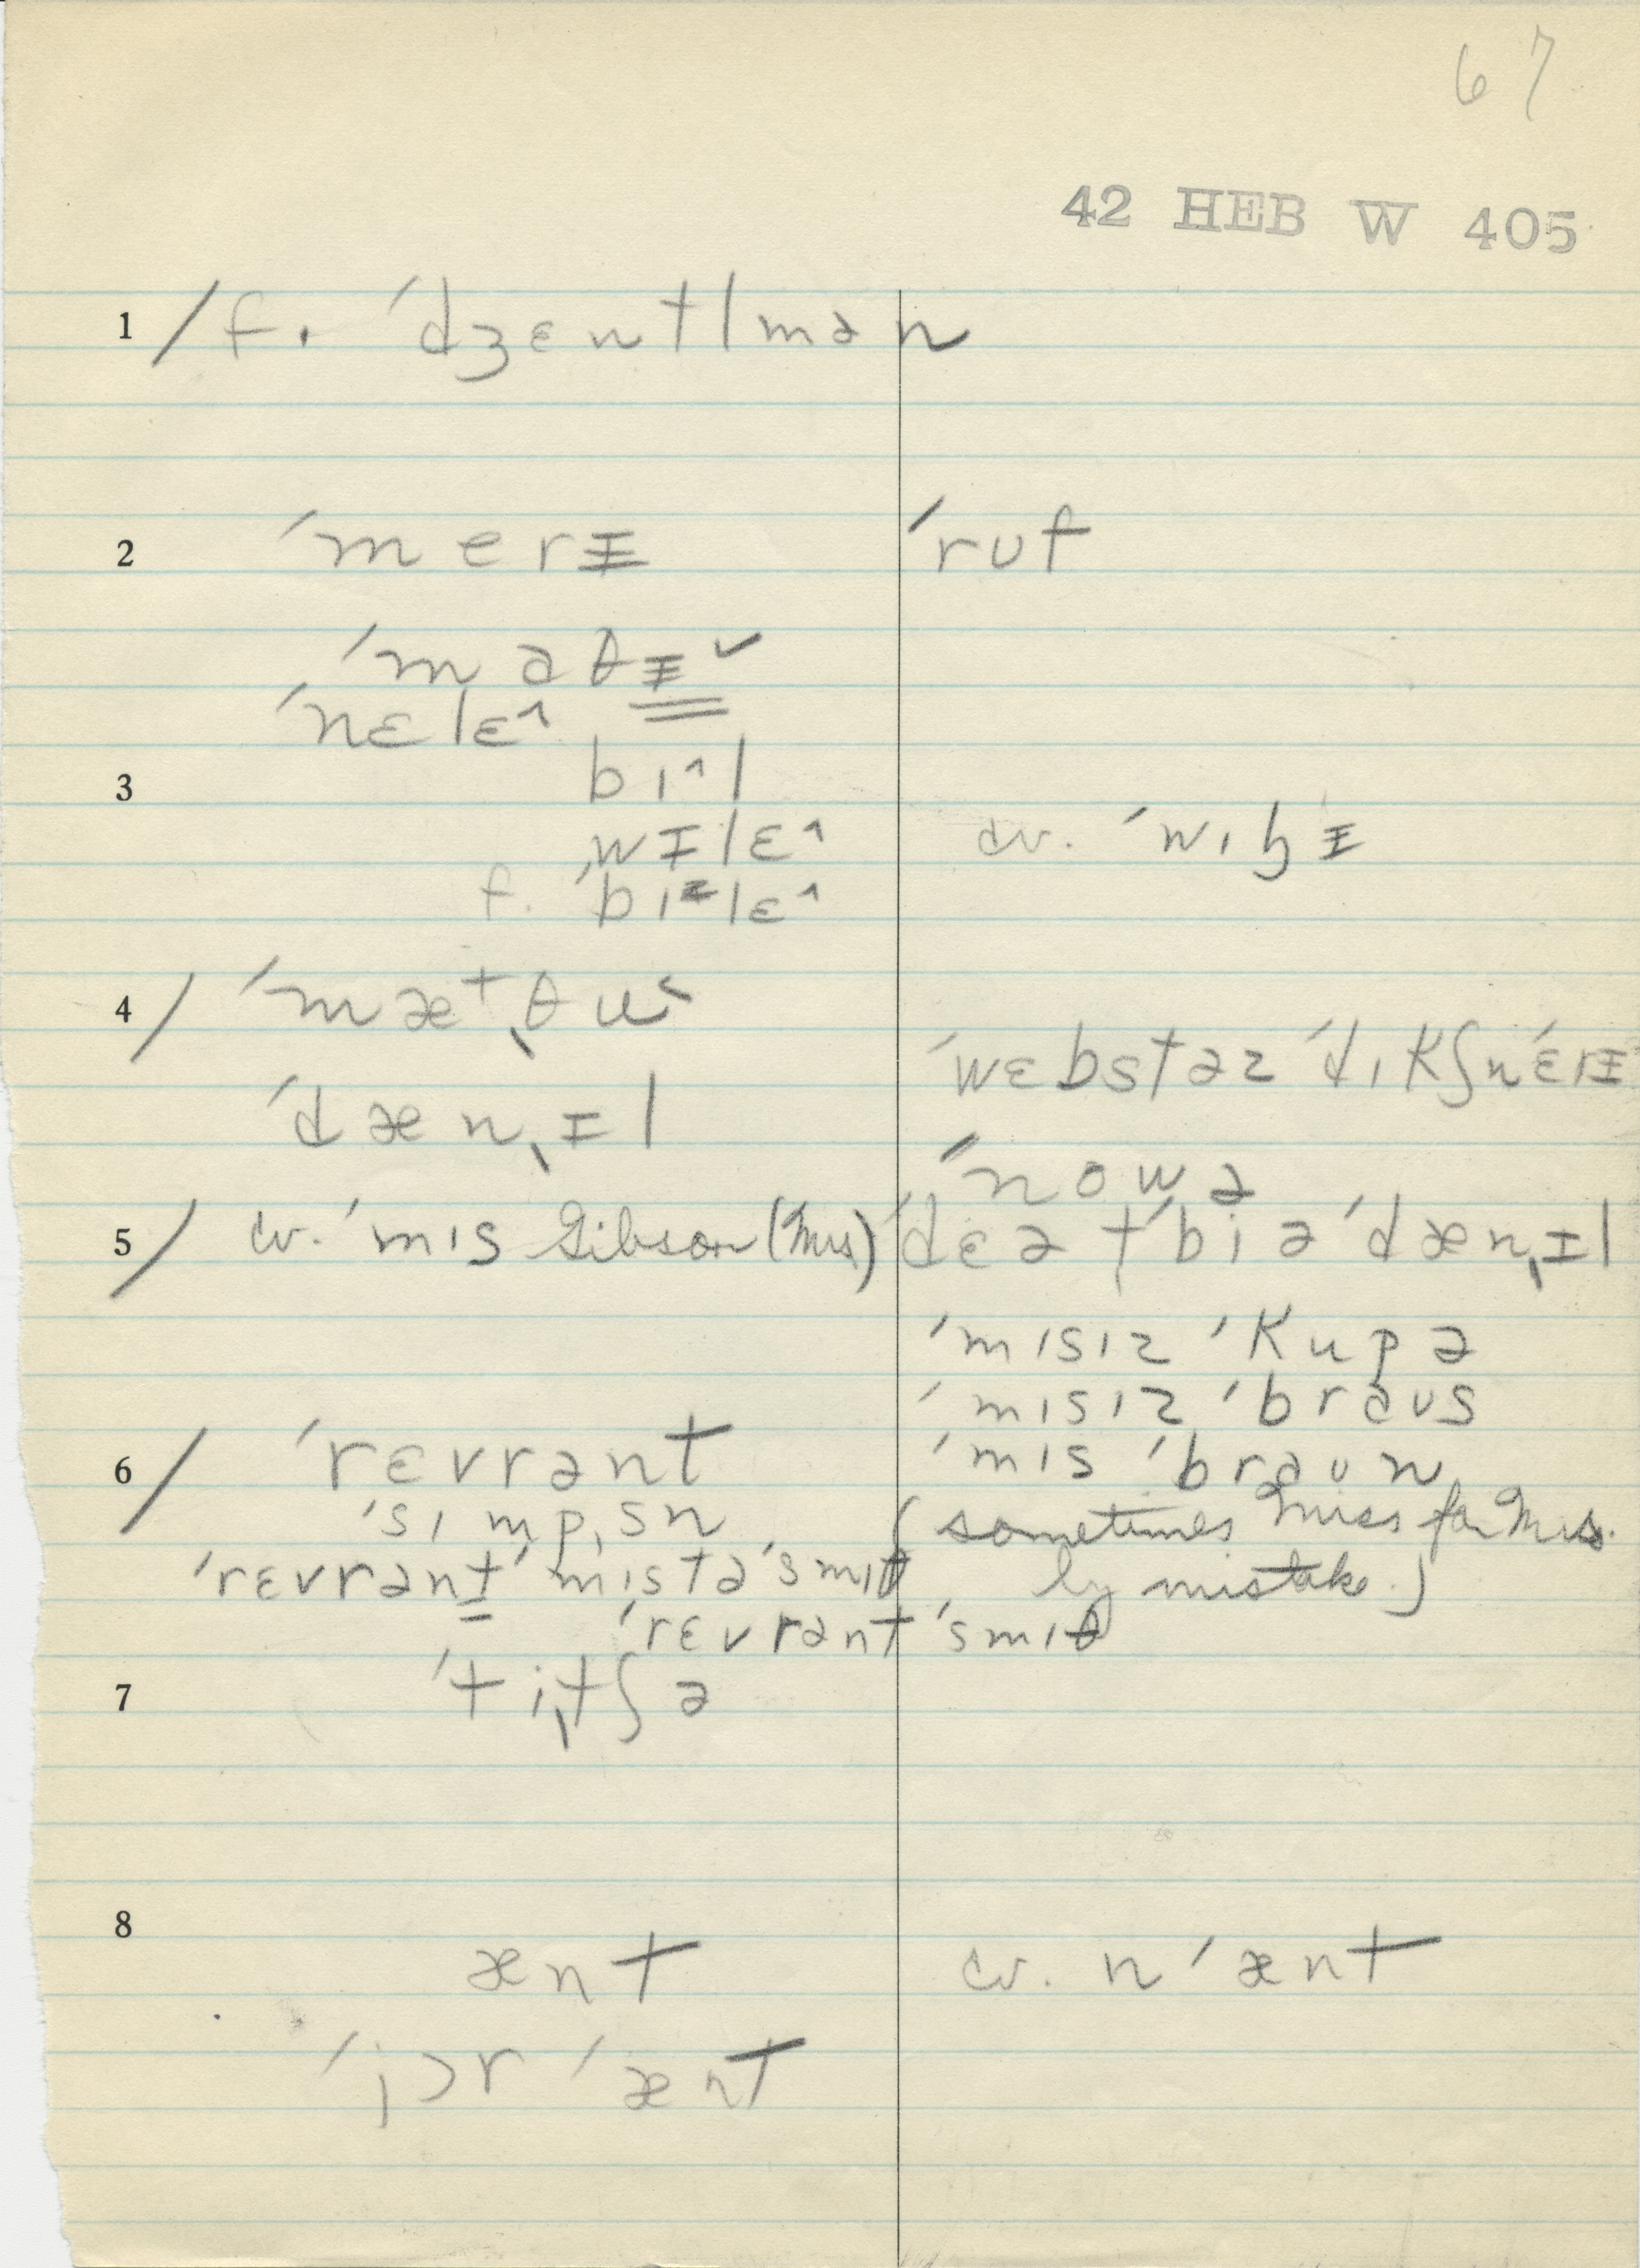 67
42 HEB W 405
1 / f. ˈdʒɛntlmən
2 ˈmerɪ̵ ˈruf
ˈmaθɪ̵ ˅
ˈnɛlɛ^
3 bɪ^l
ˈwɪ̵lɛ^ cv. ˈwɪɮɪ̵
f. ˈbɪᵻlɛ^
4 / ˈmæ⁺ˌθu˂
ˈwɛbstəz ˈdɪkʃnˈɛrɪ̵
ˈdænˌɪ̵l
ˈnowə
5 / cv. ˈmɪs Gibson (Mrs) ˈdɛə tˈbi ə ˈdænˌɪ̵l
ˈmɪsɪz ˈkupə
ˈmɪsɪz ˈbraus
6 / ˈrɛvrənt ˈmɪs ˈbraun
ˈsɪmpˌsn (sometimes Miss for Mrs.
ˈrɛvrənt ˈmɪstə ˈsmɪθ by mistake.)
ˈrɛvrənt ˈsmɪθ
7 ˈtiˌtʃə
8
ænt cv. nˈænt
ˈjɔr ˈænt